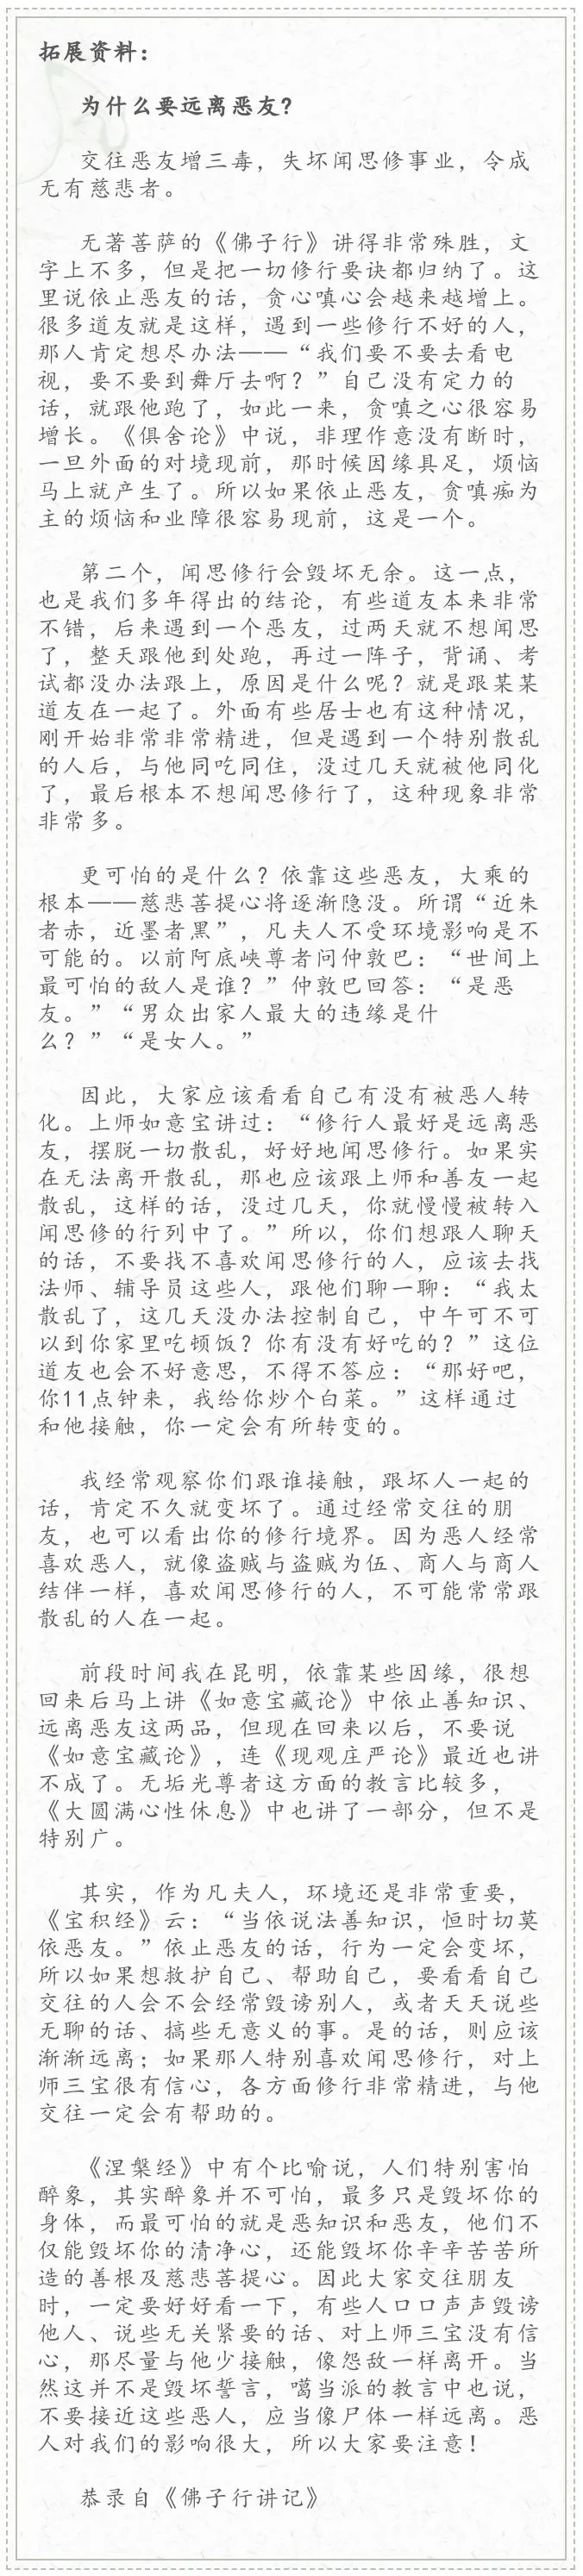 拓展资料：
为什么要远离恶友?
交往恶友增三毒，失坏闻思修事业，令成
无有慈悲者。
无著菩萨的《佛子行》讲得非常殊胜，文
字上不多，但是把一切修行要诀都归纳了。这
里说依止恶友的话，贪心嗔心会越来越增上。
很多道友就是这样，遇到一些修行不好的人，
那人肯定想尽办法——“我们要不要去看电
视，要不要到舞厅去啊？”自己没有定力的
话，就跟他跑了，如此一来，贪嗔之心很容易
增长。《俱舍论》中说，非理作意没有断时，
一旦外面的对境现前，那时候因缘具足，烦恼
马上就产生了。所以如果依止恶友，贪嗔痴为
主的烦恼和业障很容易现前，这是一个。
第二个，闻思修行会毁坏无余。这一点，
也是我们多年得出的结论，有些道友本来非常
不错，后来遇到一个恶友，过两天就不想闻思
了，整天跟他到处跑，再过一阵子，背诵、考
试都没办法跟上，原因是什么呢？就是跟某某
道友在一起了。外面有些居士也有这种情况，
刚开始非常非常精进，但是遇到一个特别散乱
的人后，与他同吃同住，没过几天就被他同化
了，最后根本不想闻思修行了，这种现象非常
非常多。
更可怕的是什么？依靠这些恶友，大乘的
根本——慈悲菩提心将逐渐隐没。所谓“近朱
者赤，近墨者黑”，凡夫人不受环境影响是不
可能的。以前阿底峡尊者问仲敦巴：“世间上
最可怕的敌人是谁？”仲敦巴回答：“是恶
友。”“男众出家人最大的违缘是什
么？”“是女人。”
因此，大家应该看看自己有没有被恶人转
化。上师如意宝讲过：“修行人最好是远离恶
友，摆脱一切散乱，好好地闻思修行。如果实
在无法离开散乱，那也应该跟上师和善友一起
散乱，这样的话，没过几天，你就慢慢被转入
闻思修的行列中了。”所以，你们想跟人聊天
的话，不要找不喜欢闻思修行的人，应该去找
法师、辅导员这些人，跟他们聊一聊：“我太
散乱了，这几天没办法控制自己，中午可不可
以到你家里吃顿饭？你有没有好吃的？”这位
道友也会不好意思，不得不答应：“那好吧，
你11点钟来，我给你炒个白菜。”这样通过
和他接触，你一定会有所转变的。
我经常观察你们跟谁接触，跟坏人一起的
话，肯定不久就变坏了。通过经常交往的朋
友，也可以看出你的修行境界。因为恶人经常
喜欢恶人，就像盗贼与盗贼为伍、商人与商人
结伴一样，喜欢闻思修行的人，不可能常常跟
散乱的人在一起。
前段时间我在昆明，依靠某些因缘，很想
回来后马上讲《如意宝藏论》中依止善知识、
远离恶友这两品，但现在回来以后，不要说
《如意宝藏论》，连《现观庄严论》最近也讲
不成了。无垢光尊者这方面的教言比较多，
《大圆满心性休息》中也讲了一部分，但不是
特别广。
其实，作为凡夫人，环境还是非常重要，
《宝积经》云：“当依说法善知识，恒时切莫
依恶友。”依止恶友的话，行为一定会变坏，
所以如果想救护自己、帮助自己，要看看自己
交往的人会不会经常毁谤别人，或者天天说些
无聊的话、搞些无意义的事。是的话，则应该
渐渐远离；如果那人特别喜欢闻思修行，对上
师三宝很有信心，各方面修行非常精进，与他
交往一定会有帮助的。
《涅槃经》中有个比喻说，人们特别害怕
醉象，其实醉象并不可怕，最多只是毁坏你的
身体，而最可怕的就是恶知识和恶友，他们不
仅能毁坏你的清净心，还能毁坏你辛辛苦苦所
造的善根及慈悲菩提心。因此大家交往朋友
时，一定要好好看一下，有些人口口声声毁谤
他人、说些无关紧要的话、对上师三宝没有信
心，那尽量与他少接触，像怨敌一样离开。当
然这并不是毁坏誓言，噶当派的教言中也说，
不要接近这些恶人，应当像尸体一样远离。恶
人对我们的影响很大，所以大家要注意！
恭录自《佛子行讲记》